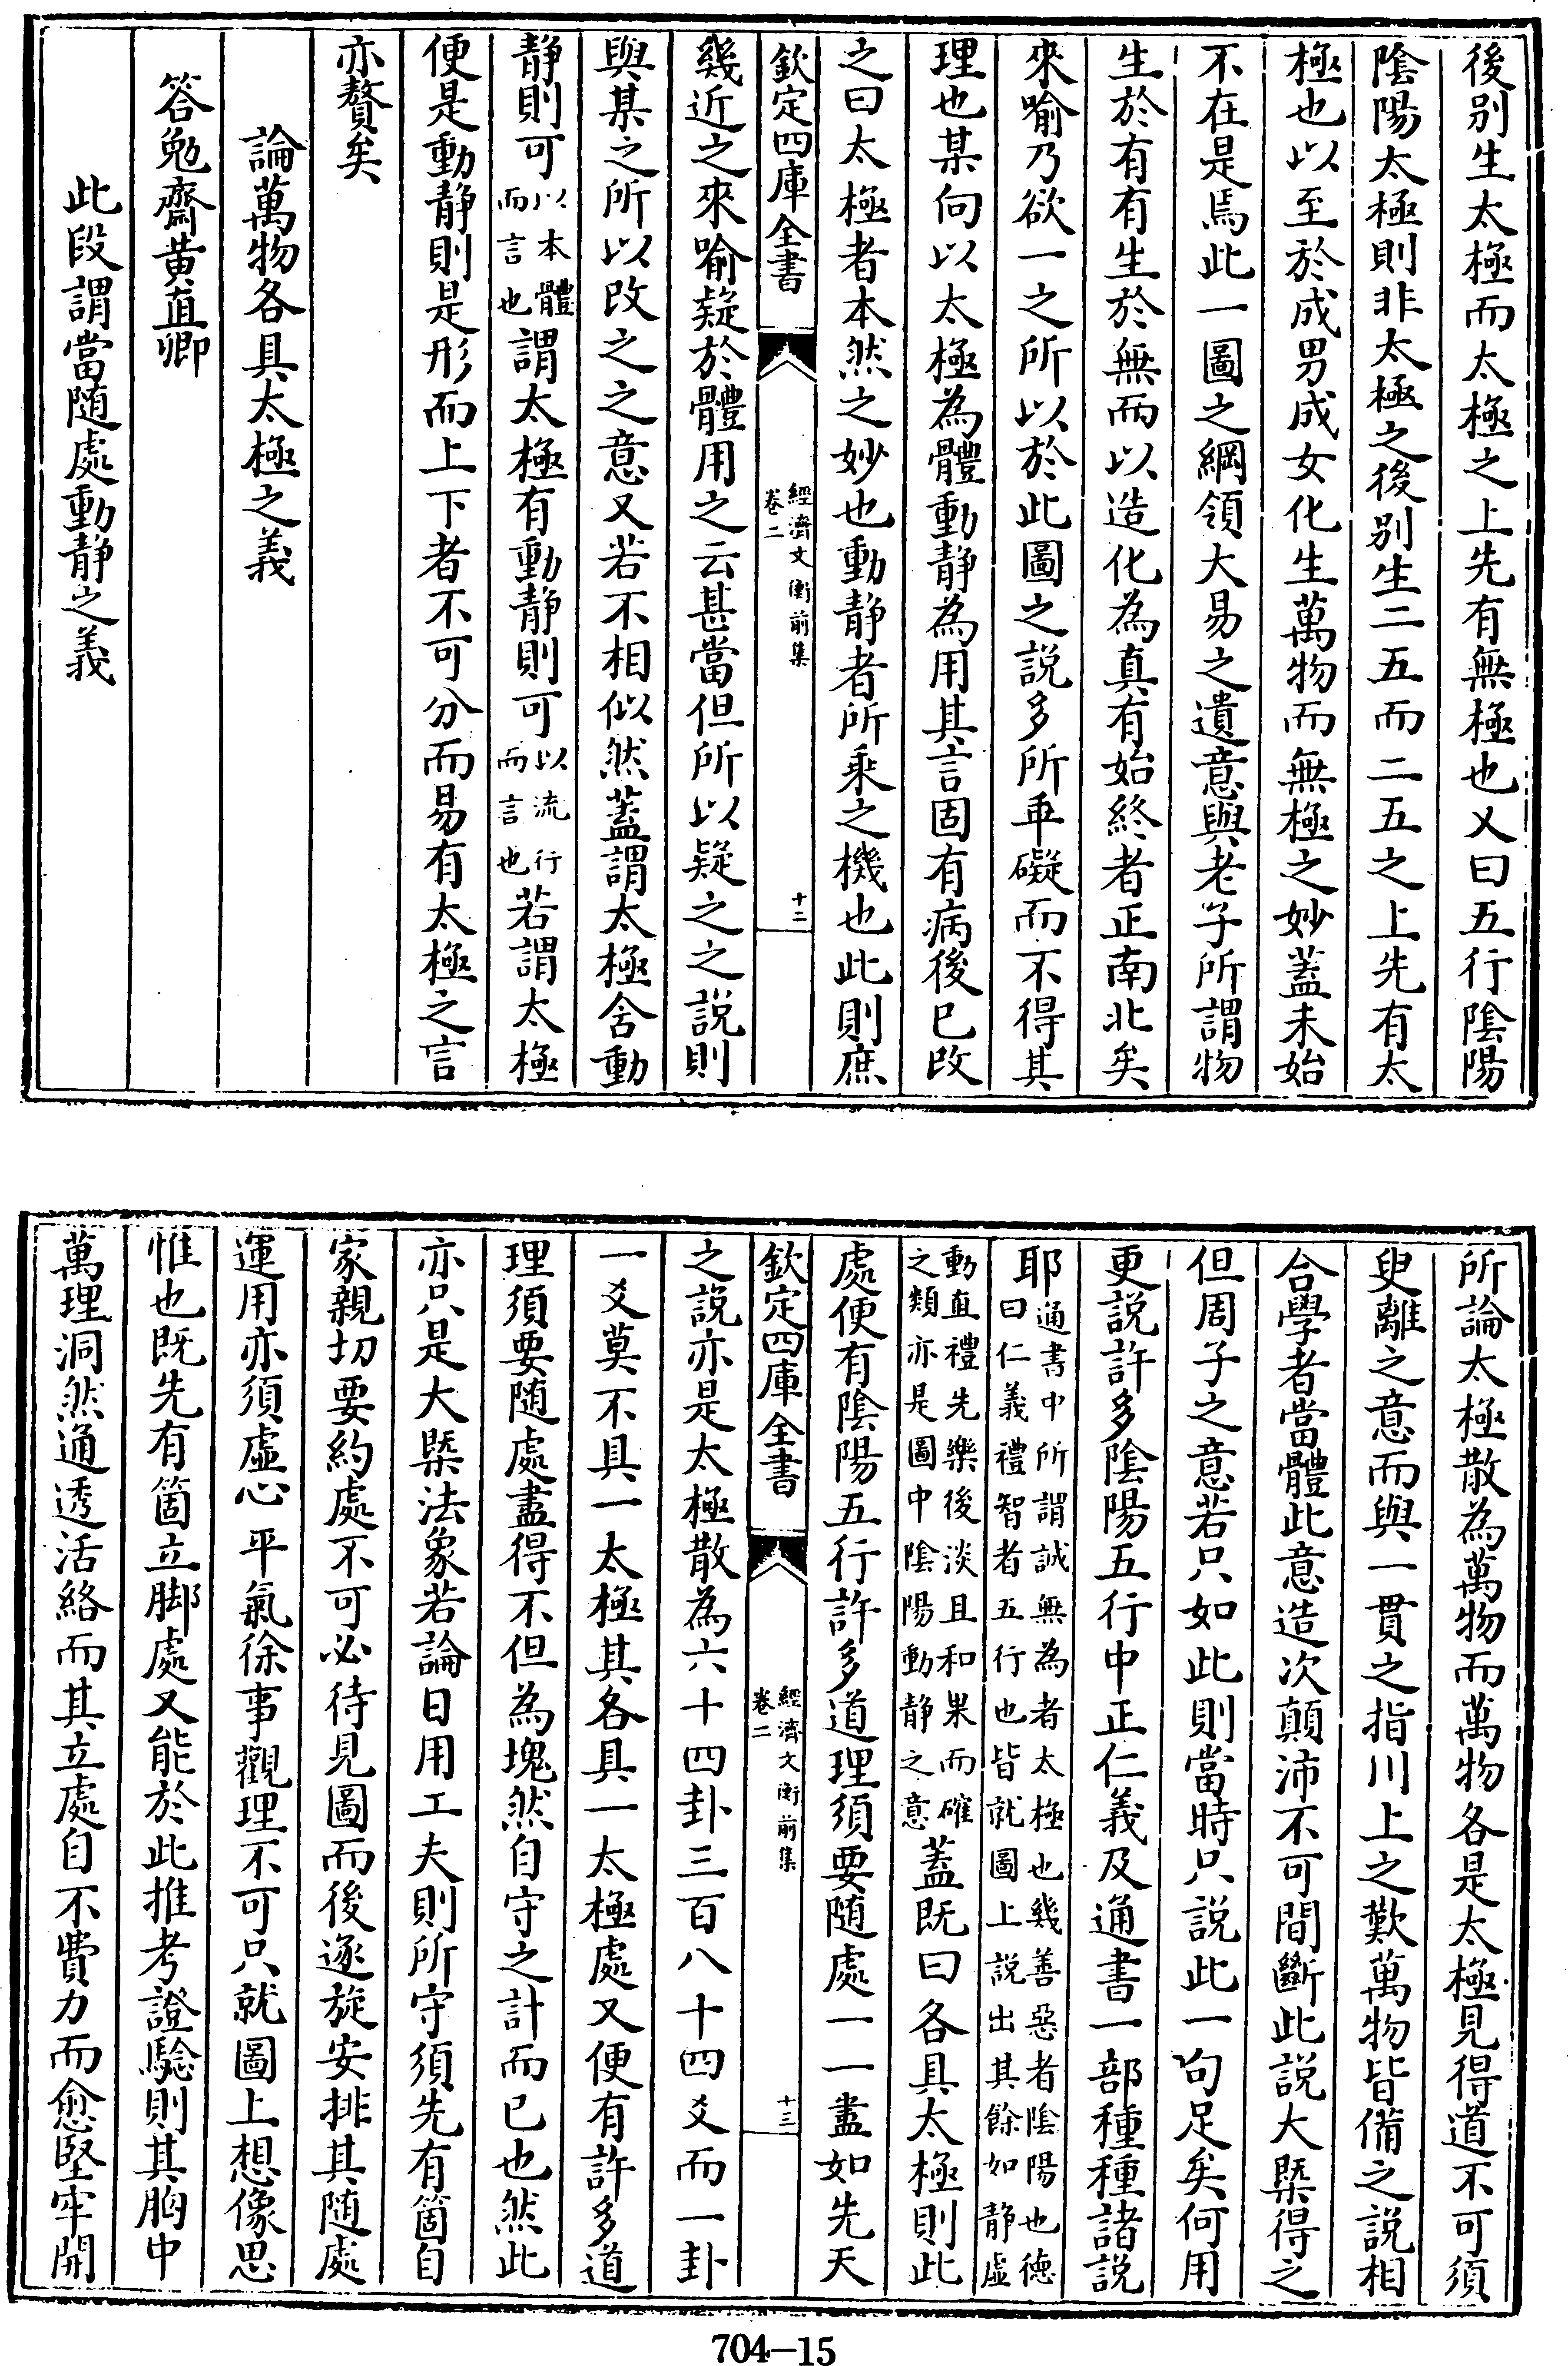 後别生太極而太極之上先有無極也又曰五行隂陽
隂陽太極則非太極之後别生二五而二五之上先有太
極也以至於成男成女化生萬物而無極之妙蓋未始
不在是焉此一圖之綱領大易之遺意與老子所謂物
生於有有生於無而以造化為真有始終者正南北矣
來喻乃欲一之所以於此圖之説多所乖礙而不得其
理也某向以太極為體動静為用其言固有病後已改
之曰太極者本然之妙也動静者所乘之機也此則庶
欽定四庫全書
經濟文衡前集
卷二
十二
幾近之來喻疑於體用之云甚當但所以疑之之説則
與某之所以改之之意又若不相似然蓋謂太極舍動
静則可以本體而言也謂太極有動静則可以流行而言也若謂太極
便是動静則是形而上下者不可分而易有太極之言
亦贅矣
論萬物各具太極之義
答勉齋黄直卿
此段謂當随處動静之義
所論太極散為萬物而萬物各是太極見得道不可須
臾離之意而與一貫之指川上之歎萬物皆備之説相
合學者當體此意造次顛沛不可間斷此説大槩得之
但周子之意若只如此則當時只説此一句足矣何用
更説許多隂陽五行中正仁義及通書一部種種諸説
耶通書中所謂誠無為者太極也幾善惡者隂陽也德曰仁義禮智者五行也皆就圖上説出其餘如静虚
動直禮先樂後淡且和果而確之類亦是圖中隂陽動静之意蓋既曰各具太極則此
處便有隂陽五行許多道理須要随處一一盡如先天
欽定四庫全書
經濟文衡前集
卷二
十三
之説亦是太極散為六十四卦三百八十四爻而一卦
一爻莫不具一太極其各具一太極處又便有許多道
理須要随處盡得不但為塊然自守之計而已也然此
亦只是大槩法象若論日用工夫則所守須先有箇自
家親切要約處不可必待見圖而後逐旋安排其随處
運用亦須虚心平氣徐事觀理不可只就圖上想像思
惟也既先有箇立脚處又能於此推考證驗則其胸中
萬理洞然通透活絡而其立處自不費力而愈堅牢開
704—15